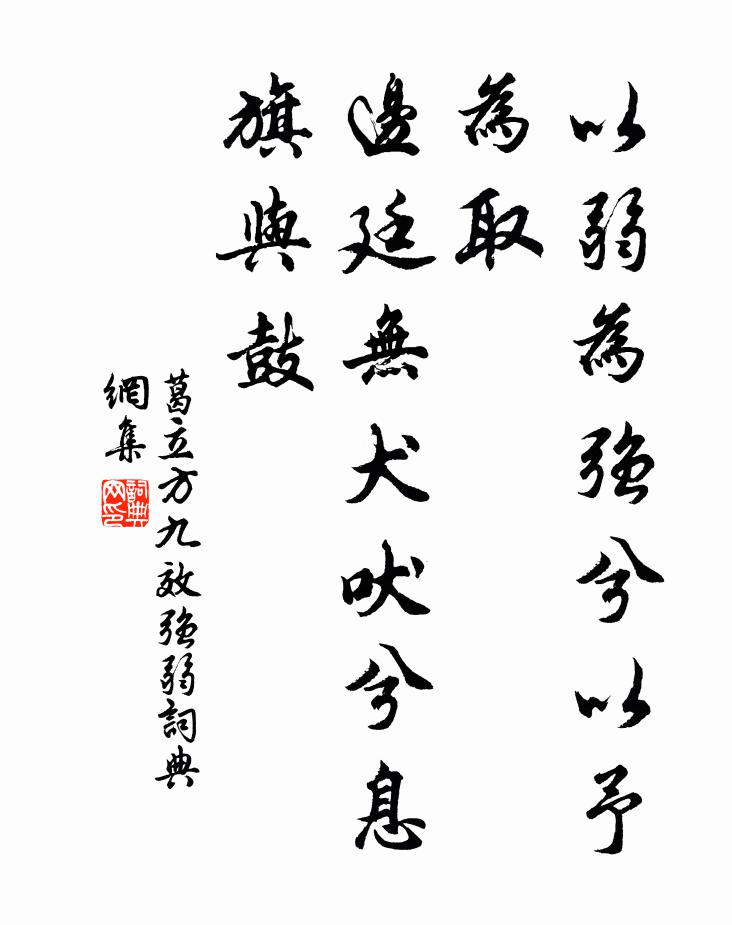 以弱為強兮以予
為取
邊廷無犬吠兮息
旗與鼓
葛立方九效強弱詞典
網集
詞典
网印